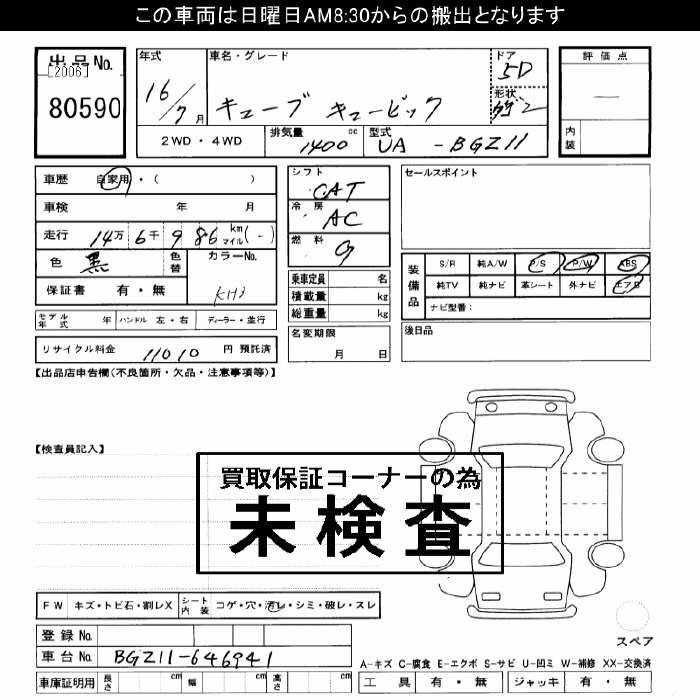 この車両は日曜日AM8:30からの搬出となります
出品No.
[2006]
80590
年式
16/7月
車名・グレード
キューブ キュービック
ドア
5D
形状
評価点
—
内装
2WD・4WD
排気量
1400 cc
型式
UA - BGZ11
車歴 自家用・( )
車検 年 月
走行 14万 6千 986 km マイル (-)
色 黒
色替
カラーNo.
KH3
保証書 有・無
モデル年式 年 ハンドル 左・右 ディーラー・並行
リサイクル料金 11010 円 預託済
シフト
CAT
冷房
AC
燃料
G
乗車定員 名
積載量 kg
総重量 kg
名変期限
月 日
セールスポイント
装備品
S/R 純A/W P/S P/W ABS
純TV 純ナビ 革シート 外ナビ エアB
ナビ型番:
後日品
【出品店申告欄(不良箇所・欠品・注意事項等)】
【検査員記入】
買取保証コーナーの為
未検査
FW キズ・トビ石・割レX シート内装 コゲ・穴・汚レ・シミ・破レ・スレ
登録No.
車台No. BGZ11-646941
車庫証明用 長さ cm 幅 cm 高さ cm
スペア
A-キズ C-腐食 E-エクボ S-サビ U-凹ミ W-補修 XX-交換済
工具 有・無 ジャッキ 有・無